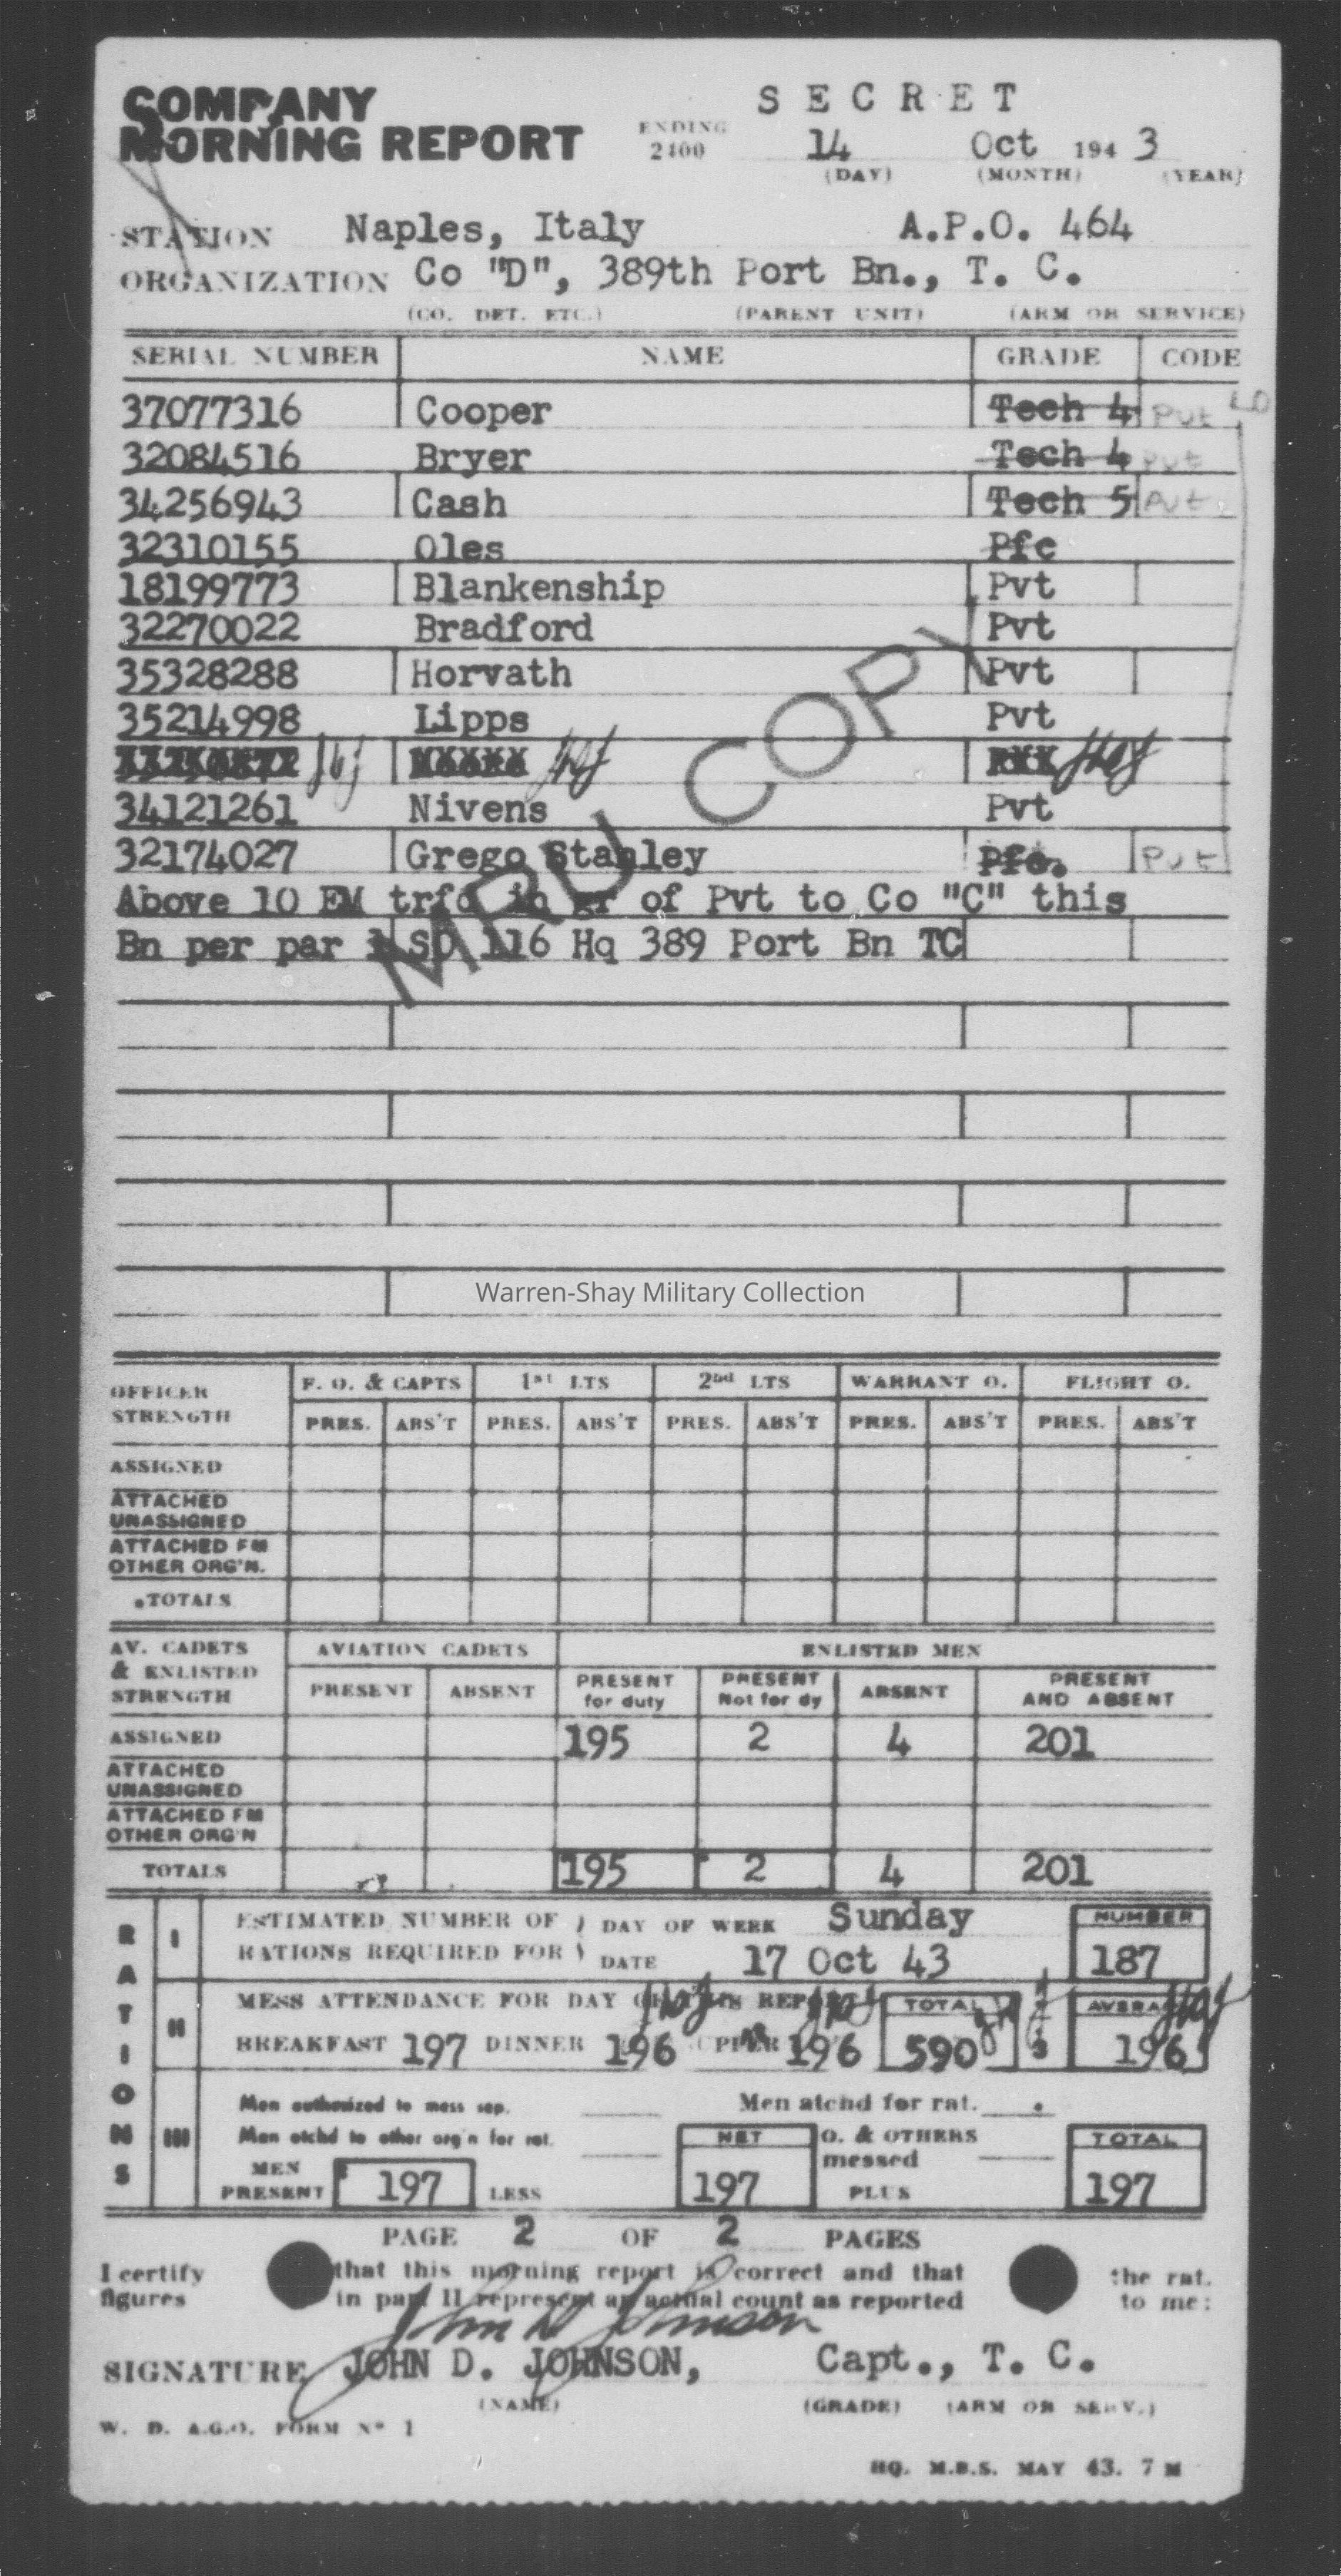 COMPANY
MORNING REPORT
SECRET
ENDING 2400 14 Oct 1943
(DAY) (MONTH) (YEAR)
STATION Naples, Italy A.P.O. 464
ORGANIZATION Co "D", 389th Port Bn., T. C.
(CO. DET. ETC.) (PARENT UNIT) (ARM OR SERVICE)
SERIAL NUMBER NAME GRADE CODE
37077316 Cooper Tech 4 Pvt
32084516 Bryer Tech 4 Pvt
34256943 Cash Tech 5 Pvt
32310155 Oles Pfc
18199773 Blankenship Pvt
32270022 Bradford Pvt
35328288 Horvath Pvt
35214998 Lipps Pvt
34121261 Nivens Pvt
32174027 Grego Stanley Pfc. Pvt
Above 10 EM trfd in gr of Pvt to Co "C" this
Bn per par 1 SO 116 Hq 389 Port Bn TC
MRU COPY
Warren-Shay Military Collection
OFFICER STRENGTH F. O. & CAPTS 1st LTS 2nd LTS WARRANT O. FLIGHT O.
PRES. ABS'T PRES. ABS'T PRES. ABS'T PRES. ABS'T PRES. ABS'T
ASSIGNED
ATTACHED
UNASSIGNED
ATTACHED FM
OTHER ORG'N.
TOTALS
AV. CADETS
& ENLISTED
STRENGTH
AVIATION CADETS ENLISTED MEN
PRESENT ABSENT PRESENT for duty PRESENT Not for dy ABSENT PRESENT AND ABSENT
ASSIGNED 195 2 4 201
ATTACHED
UNASSIGNED
ATTACHED FM
OTHER ORG'N
TOTALS 195 2 4 201
RATIONS
I
ESTIMATED NUMBER OF RATIONS REQUIRED FOR DAY OF WEEK Sunday NUMBER
DATE 17 Oct 43 187
II
MESS ATTENDANCE FOR DAY OF THIS REPORT TOTAL AVERAGE
BREAKFAST 197 DINNER 196 SUPPER 196 590 3 196
III
Men authorized to mess sep. Men atchd for rat.
Men atchd to other org'n for rat. NET O. & OTHERS messed TOTAL
MEN PRESENT 197 LESS 197 PLUS 197
PAGE 2 OF 2 PAGES
I certify that this morning report is correct and that the rat.
figures in part II represent an actual count as reported to me:
John D Johnson
SIGNATURE JOHN D. JOHNSON, Capt., T. C.
(NAME) (GRADE) (ARM OR SERV.)
W. D. A.G.O. FORM No 1
HQ. M.B.S. MAY 43. 7 M